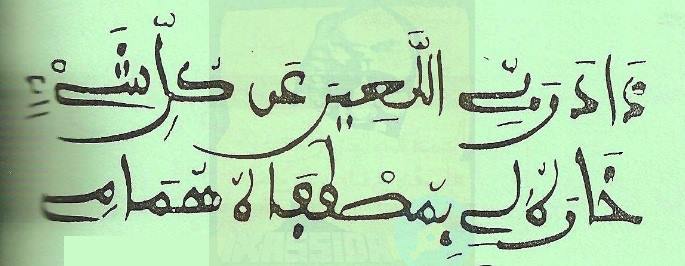 ذَادَ رَبِّي اللَّعِينَ عَن كُلِّ شَيْ
خَارَهُ لِي بِمُصْطَفَاهُ هُمَامِي